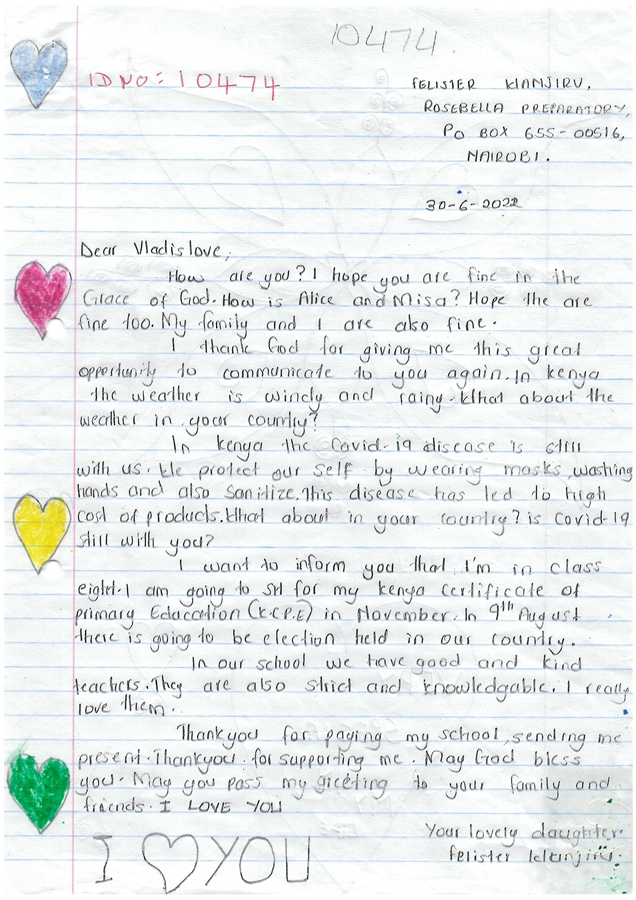 10474.
ID NO: 10474
FELISTER WANJIRU,
ROSEBELLA PREPARATORY,
PO BOX 655-00516,
NAIROBI.
30-6-2022
Dear Vladislove,
How are you? I hope you are fine in the
Grace of God. How is Alice and Misa? Hope the are
fine too. My family and I are also fine.
I thank God for giving me this great
opportunity to communicate to you again. In kenya
the weather is windy and rainy. What about the
weather in your country?
In kenya the Covid-19 disease is still
with us. We protect our self by wearing masks, washing
hands and also sanitize. This disease has led to high
cost of products. What about in your country? is Covid-19
still with you?
I want to inform you that I'm in class
eight. I am going to sit for my kenya certificate of
primary Education (K.C.P.E) in November. In 9th August
there is going to be election held in our country.
In our school we have good and kind
teachers. They are also strict and knowledgable. I really
love them.
Thankyou for paying my school, sending me
present. Thankyou for supporting me. May God bless
you. May you pass my greeting to your family and
friends. I LOVE YOU
Your lovely daughter.
felister Wanjiru.
I ♡ YOU